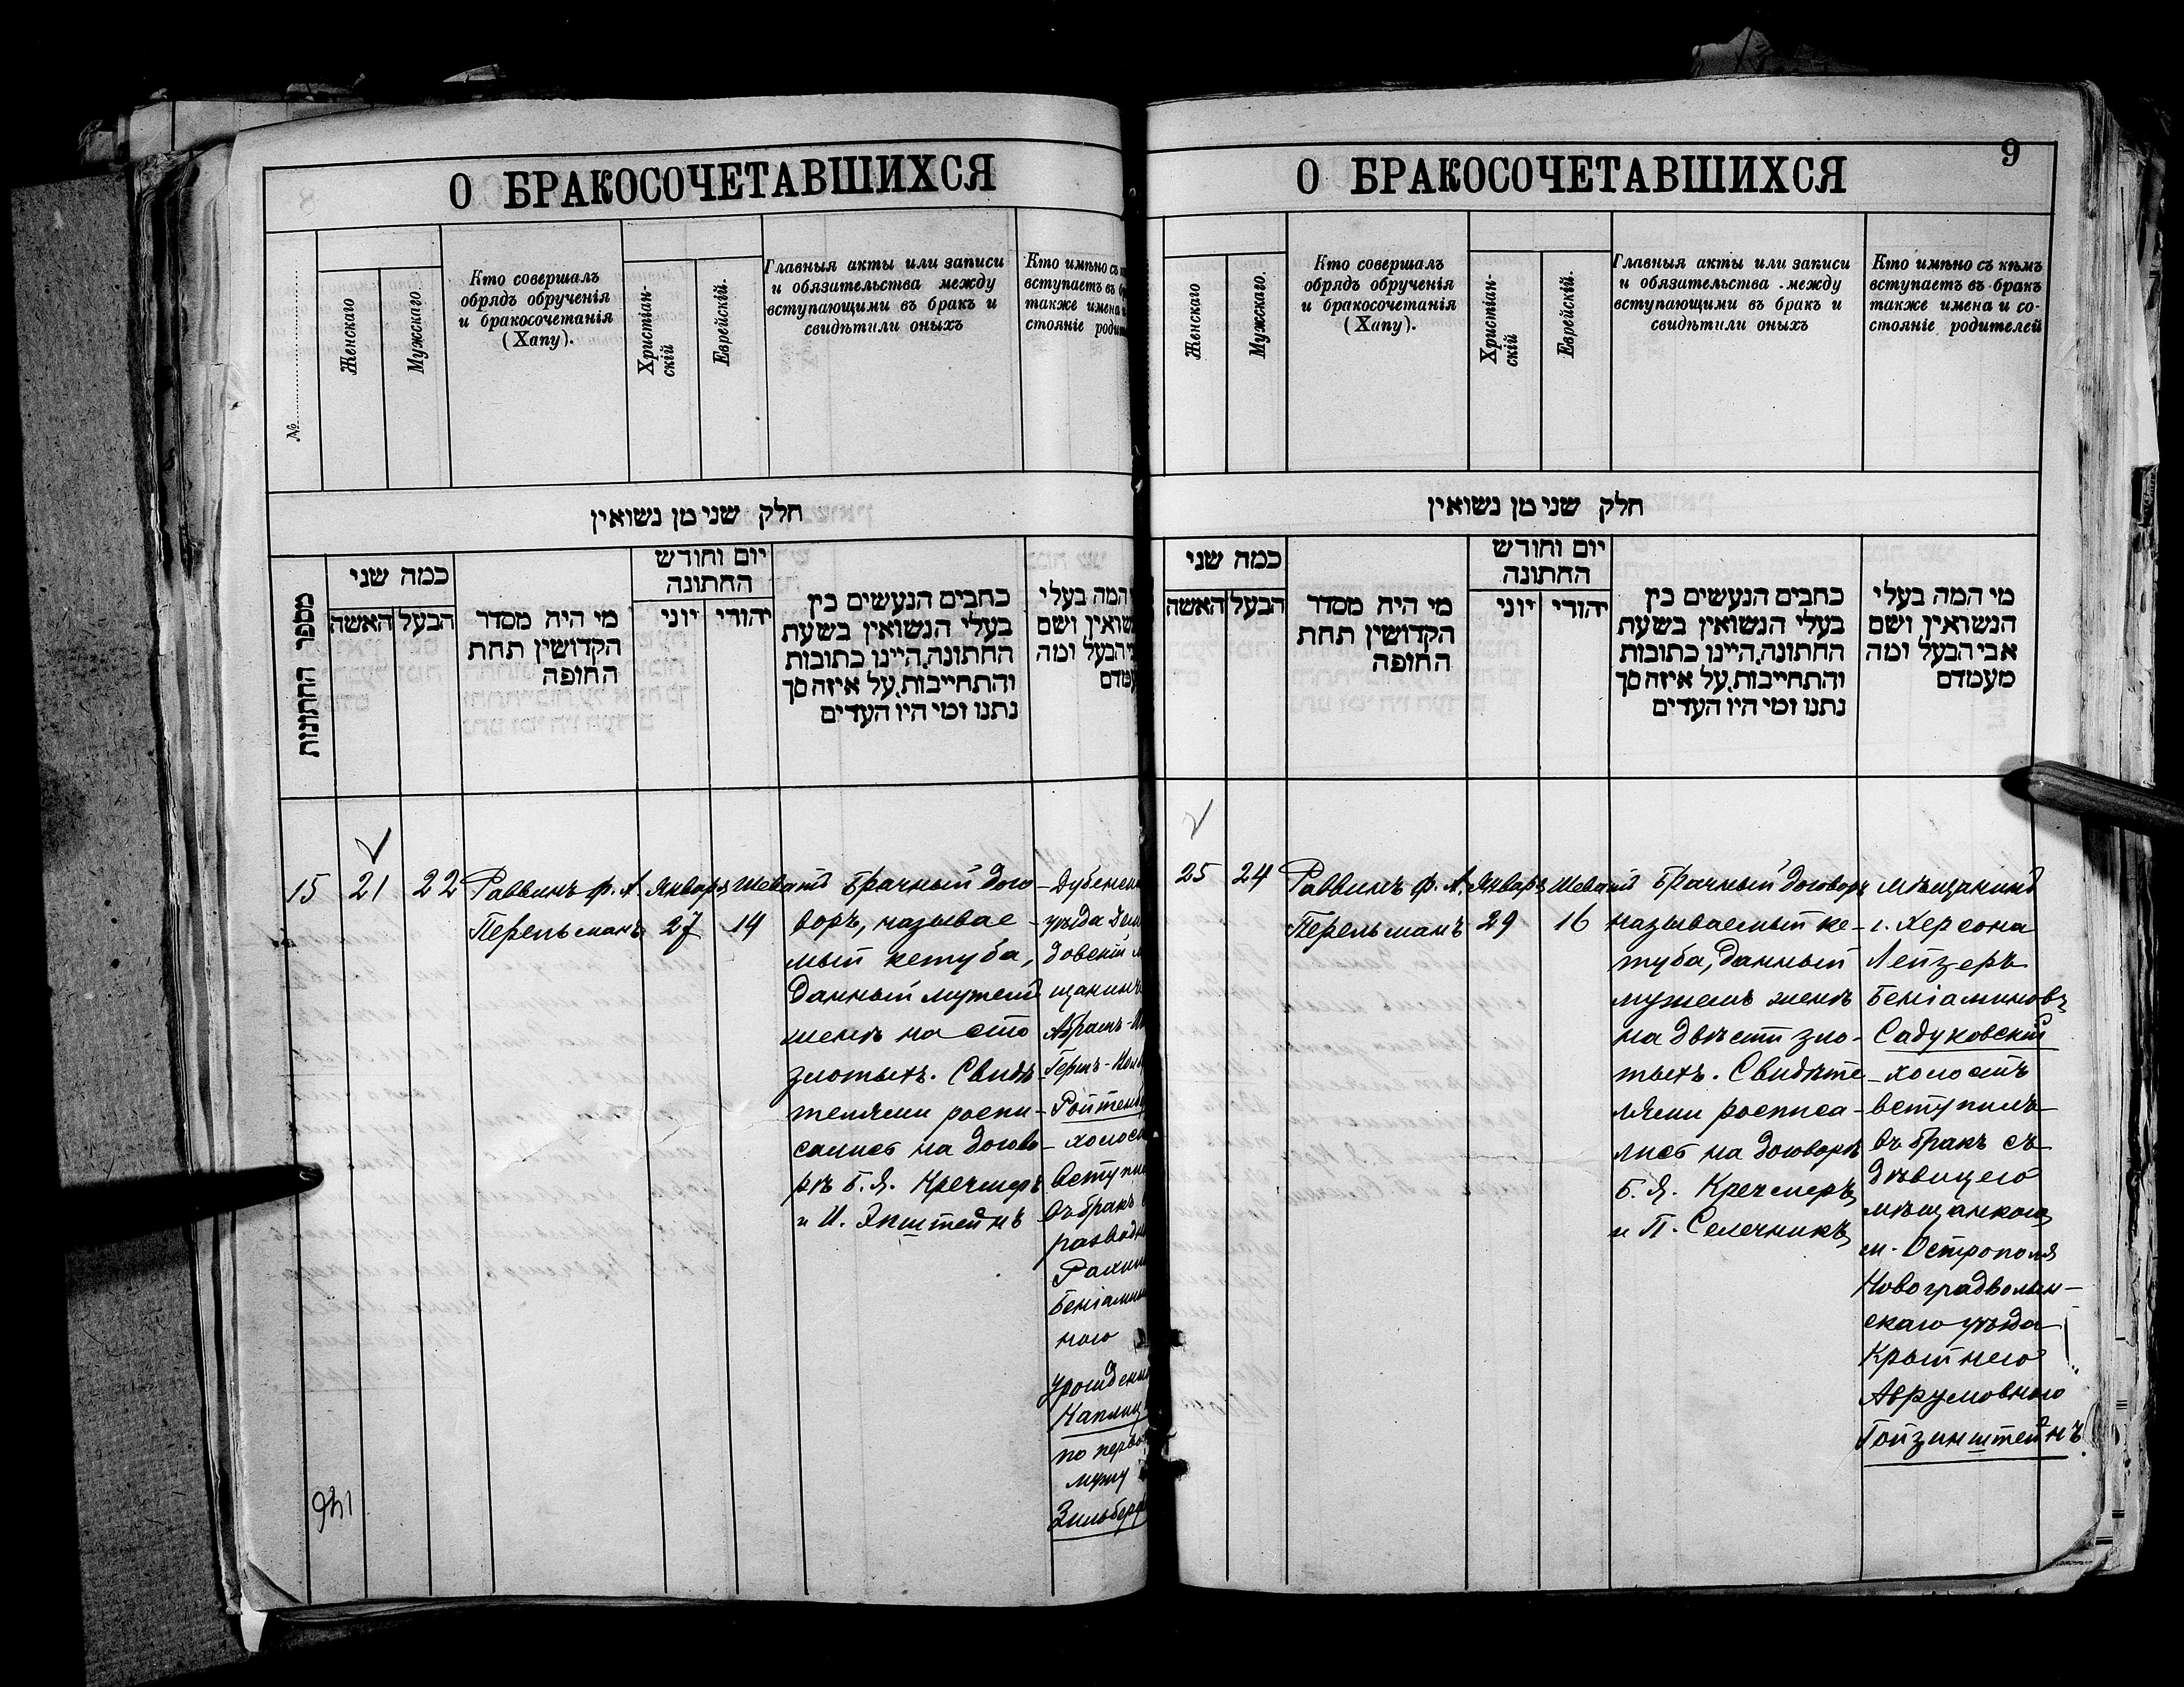 О БРАКОСОЧЕТАВШИХСЯ
№
Женскаго
Мужскаго
Кто совершалъ
обрядъ обрученія
и бракосочетанія
(Хапу).
Христіан-
скій
Еврейскій.
Главныя акты или записи
и обязательства между
вступающими въ бракъ и
свидѣтили оныхъ
Кто имѣно съ
вступаетъ въ
также имена
стояніе
חלק שני מן נשואין
מספר החתונות
כמה שני
האשה
הבעל
מי היה מסדר
הקדושין תחת
החופה
יום וחודש
החתונה
יוני
יהודי
כתבים הנעשים בין
בעלי הנשואין בשעת
החתונה, היינו כתובות
והתחייבות, על איזה סך
נתנו ומי היו העדים
המה בעלי
ושם
הבעל ומה
15
21
22
Раввинъ Ф. А.
Перельманъ
Января
27
Шеватъ
14
Брачный дого-
воръ, называе-
мый кетуба,
данный мужемъ
женѣ на сто
злотыхъ. Свидѣ-
телями роспи-
сались на догово-
рѣ Б. Я. Кречмеръ
и И. Эпштейнъ
уѣзда
довскій
щанинъ
Абрамъ-
Герш-
вступи
въ бракъ
развод
ною
по
мужу
146
О БРАКОСОЧЕТАВШИХСЯ
9
Женскаго
Мужскаго.
Кто совершалъ
обрядъ обрученія
и бракосочетанія
(Хапу).
Христіан-
скій
Еврейскій.
Главныя акты или записи
и обязательства между
вступающими въ бракъ и
свидѣтили оныхъ
Кто имѣно съ кѣмъ
вступаетъ въ бракъ
также имена и со-
стояніе родителей
חלק שני מן נשואין
כמה שני
האשה
הבעל
מי היה מסדר
הקדושין תחת
החופה
יום וחודש
החתונה
יוני
יהודי
כתבים הנעשים בין
בעלי הנשואין בשעת
החתונה, היינו כתובות
והתחייבות, על איזה סך
נתנו ומי היו העדים
מי המה בעלי
הנשואין, ושם
אבי הבעל ומה
מעמדם
25
24
Раввинъ Ф. А.
Перельманъ
Январь
29
Шеватъ
16
Брачный договоръ
называемый ке-
туба, данный
мужемъ женѣ
на двѣсти зло-
тыхъ. Свидѣте-
лями росписа-
лись на договорѣ
Б. Я. Кречмеръ
и П. Селечникъ
мѣщанинъ
г. Херсона
Лейзеръ
Беніаминовъ
Садуковскій
холостъ
вступилъ
въ бракъ съ
дѣвицею
мѣщанкою
м. Острополя
Новоградволын-
скаго уѣзда
Крейнею
Аврумовною
Гойзинштейнъ.